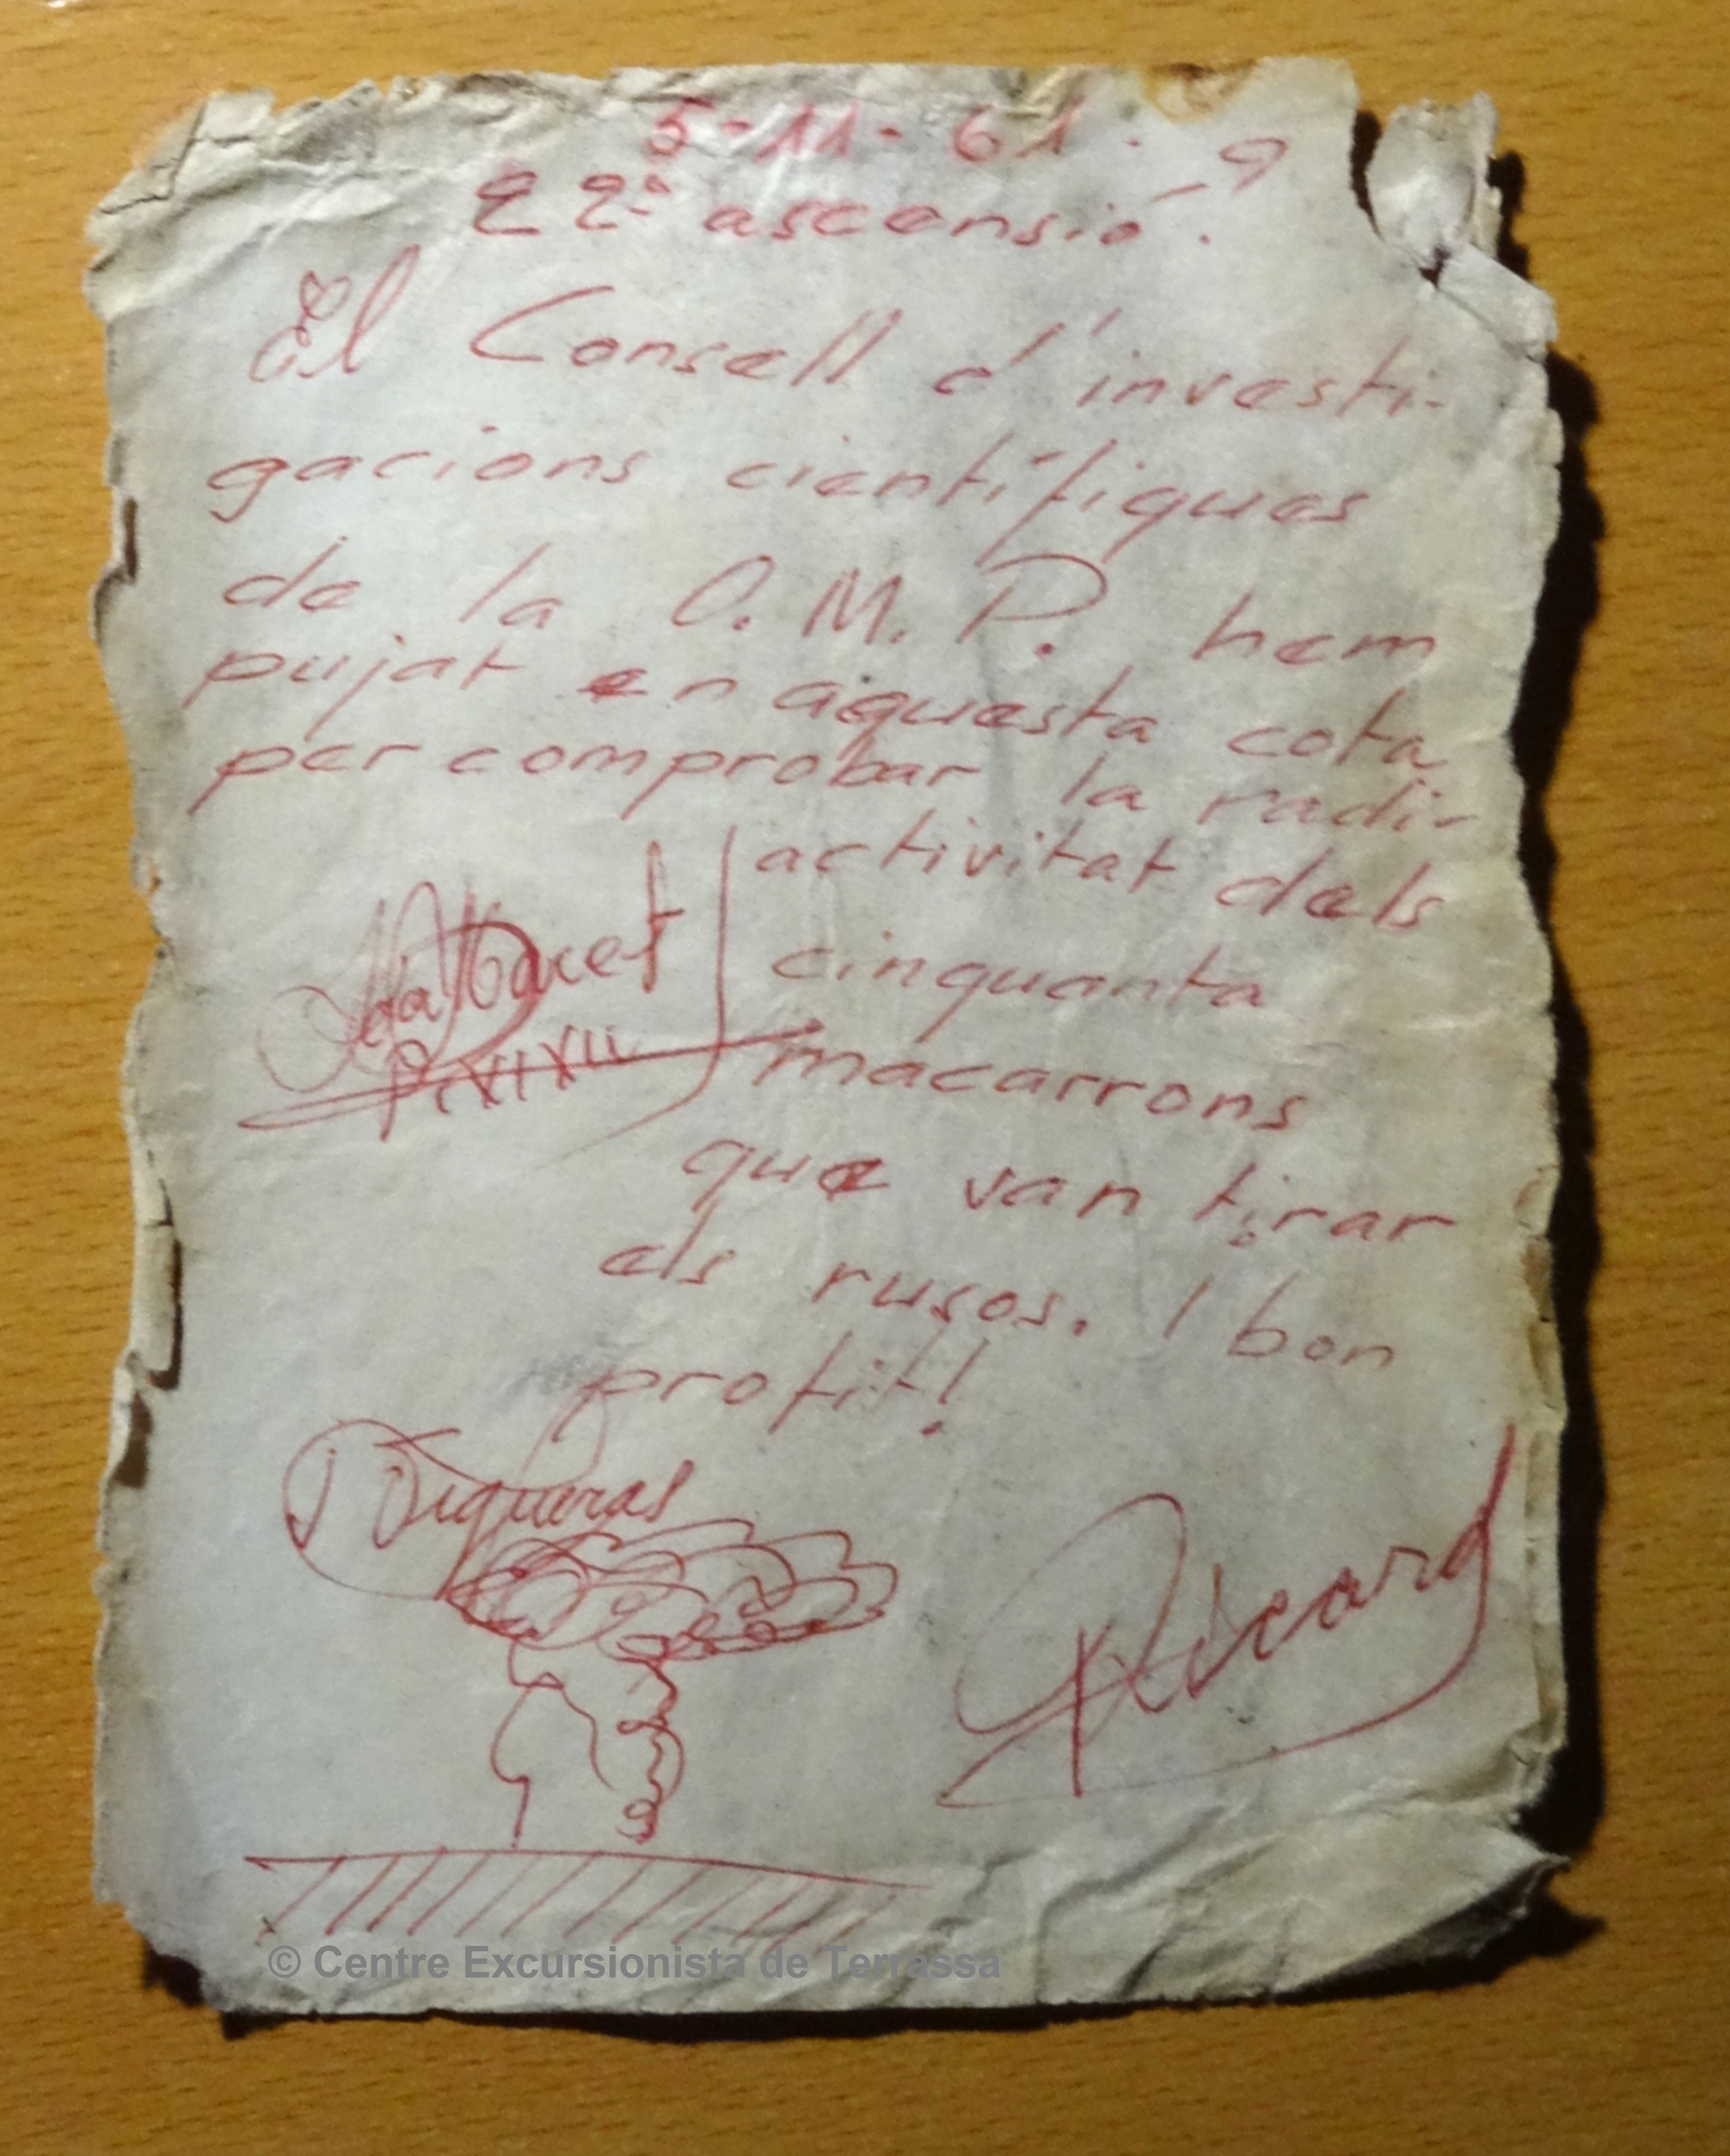 5-11-61. 9
22ª ascensió.
El Consell d'investi-
gacions cientifiques
de la O. M. P. hem
pujat en aquesta cota
per comprobar la radi-
activitat dels
cinquanta
macarrons
que van tirar
els rusos. I bon
profit!
J Figueras
Ricard
© Centre Excursionista de Terrassa